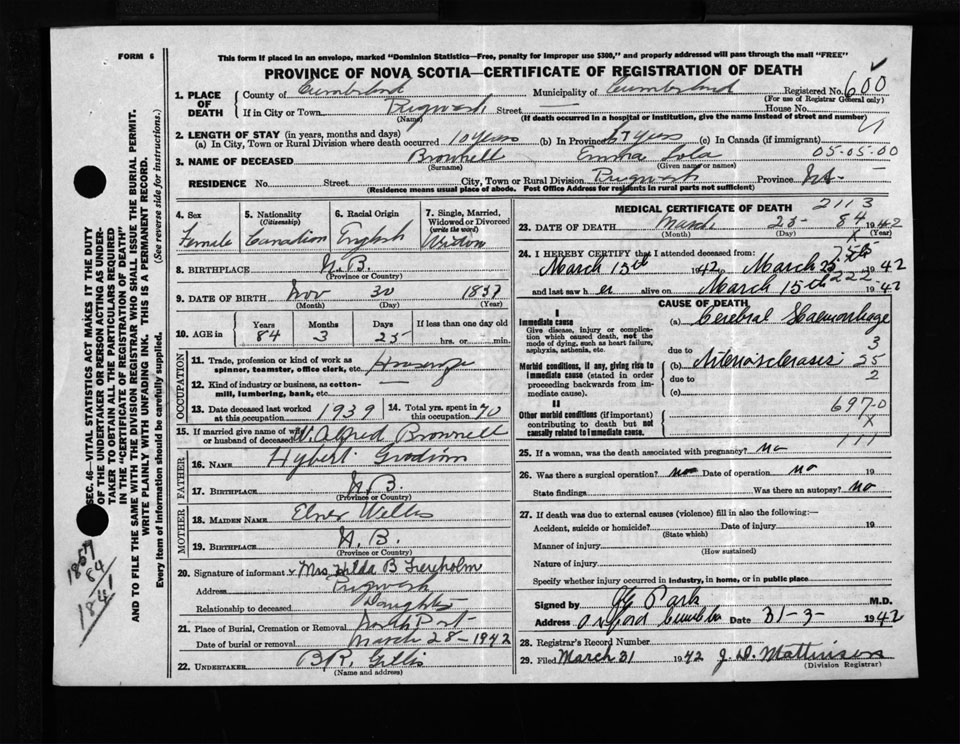 FORM 6
This form if placed in an envelope, marked "Dominion Statistics—Free, penalty for improper use $300," and properly addressed will pass through the mail "FREE"
PROVINCE OF NOVA SCOTIA—CERTIFICATE OF REGISTRATION OF DEATH
1. PLACE OF DEATH
County of Cumberland Municipality of Cumberland Registered No. 600
(For use of Registrar General only)
If in City or Town Pugwash Street — House No.
(Name) (If death occurred in a hospital or institution, give the name instead of street and number)
2. LENGTH OF STAY (in years, months and days)
(a) In City, Town or Rural Division where death occurred 10 years (b) In Province 67 years (c) In Canada (if immigrant)
05-05-00
3. NAME OF DECEASED Brownell Emma
(Surname) (Given name or names)
RESIDENCE No. Street City, Town or Rural Division Pugwash Province N.S.
(Residence means usual place of abode. Post Office Address for residents in rural parts not sufficient)
4. Sex
Female
5. Nationality
(Citizenship)
Canadian
6. Racial Origin
English
7. Single, Married, Widowed or Divorced
(write the word)
Widow
8. BIRTHPLACE N.B.
(Province or Country)
9. DATE OF BIRTH Nov 30 1857
(Month) (Day) (Year)
10. AGE in Years Months Days If less than one day old
84 3 25 hrs. or min.
OCCUPATION
11. Trade, profession or kind of work as spinner, teamster, office clerk, etc.
12. Kind of industry or business, as cotton-mill, lumbering, bank, etc.
13. Date deceased last worked at this occupation 1939
14. Total yrs. spent in this occupation 70
15. If married give name of wife or husband of deceased Alfred Brownell
FATHER
16. NAME
17. BIRTHPLACE N.B.
(Province or Country)
MOTHER
18. MAIDEN NAME
19. BIRTHPLACE N.B.
(Province or Country)
20. Signature of informant Mrs. Hilda B
Address Pugwash
Relationship to deceased Daughter
21. Place of Burial, Cremation or Removal North Port
Date of burial or removal March 28-1942
22. UNDERTAKER Gillis
(Name and address)
MEDICAL CERTIFICATE OF DEATH
2113
23. DATE OF DEATH March 25- 84 1942
(Month) (Day) (Year)
24. I HEREBY CERTIFY that I attended deceased from:
March 15th 1942 to March 25 1942
and last saw her alive on March 15th 1942
222
CAUSE OF DEATH
I
Immediate cause
Give disease, injury or complication which caused death, not the mode of dying, such as heart failure, asphyxia, asthenia, etc.
(a) Cerebral Haemorrhage
3
due to
Morbid conditions, if any, giving rise to immediate cause (stated in order proceeding backwards from immediate cause).
(b) Arteriosclerosis 25
due to 2
(c)
II
Other morbid conditions (if important) contributing to death but not causally related to immediate cause.
6970
X
111
25. If a woman, was the death associated with pregnancy? no
26. Was there a surgical operation? no Date of operation no 19
State findings Was there an autopsy? no
27. If death was due to external causes (violence) fill in also the following:—
Accident, suicide or homicide? Date of injury 19
(State which)
Manner of injury
(How sustained)
Nature of injury
Specify whether injury occurred in industry, in home, or in public place
Signed by Park M.D.
Address Oxford Date 31-3- 1942
28. Registrar's Record Number
29. Filed March 31 1942 J. D.
(Division Registrar)
SEC. 46—VITAL STATISTICS ACT MAKES IT THE DUTY
OF THE UNDERTAKER OR PERSON ACTING AS UNDERTAKER TO OBTAIN ALL THE PARTICULARS REQUIRED
IN THE "CERTIFICATE OF REGISTRATION OF DEATH"
AND TO FILE THE SAME WITH THE DIVISION REGISTRAR WHO SHALL ISSUE THE BURIAL PERMIT.
WRITE PLAINLY WITH UNFADING INK. THIS IS A PERMANENT RECORD.
Every item of information should be carefully supplied. (See reverse side for instructions.)
1857
84
1841